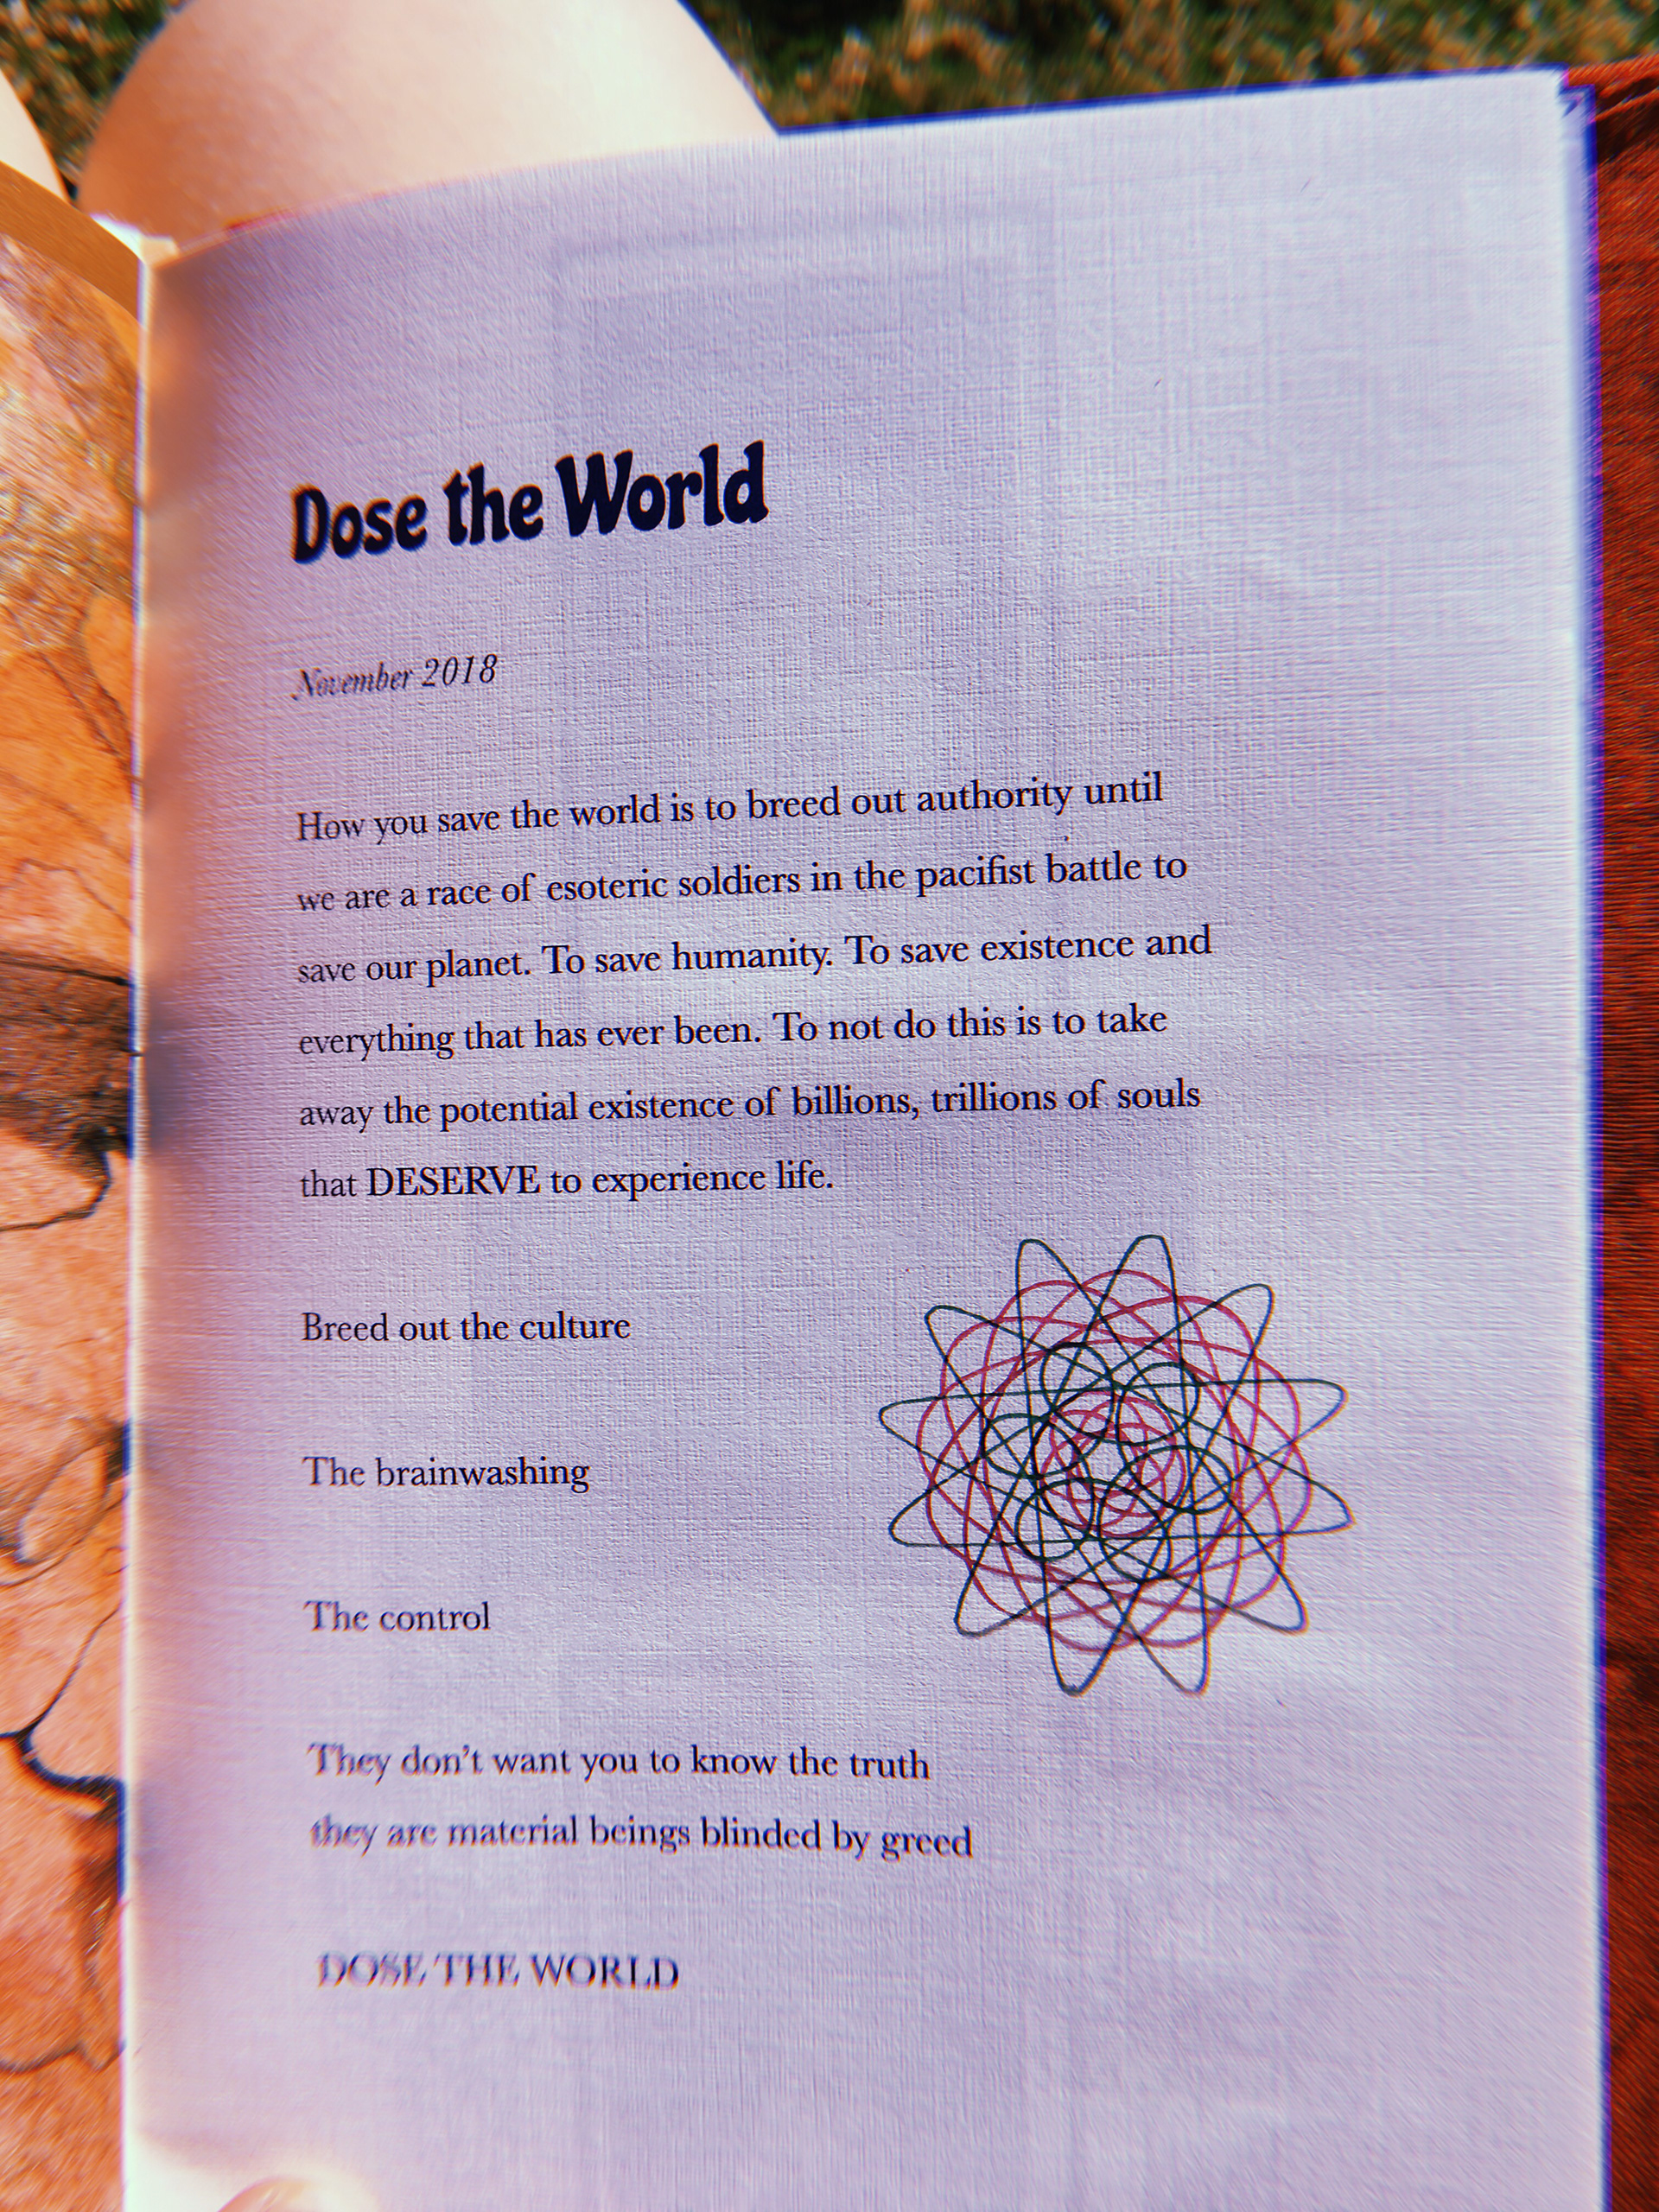 Dose the World
November 2018
How you save the world is to breed out authority until
we are a race of esoteric soldiers in the pacifist battle to
save our planet. To save humanity. To save existence and
everything that has ever been. To not do this is to take
away the potential existence of billions, trillions of souls
that DESERVE to experience life.
Breed out the culture
The brainwashing
The control
They don't want you to know the truth
they are material beings blinded by greed
DOSE THE WORLD